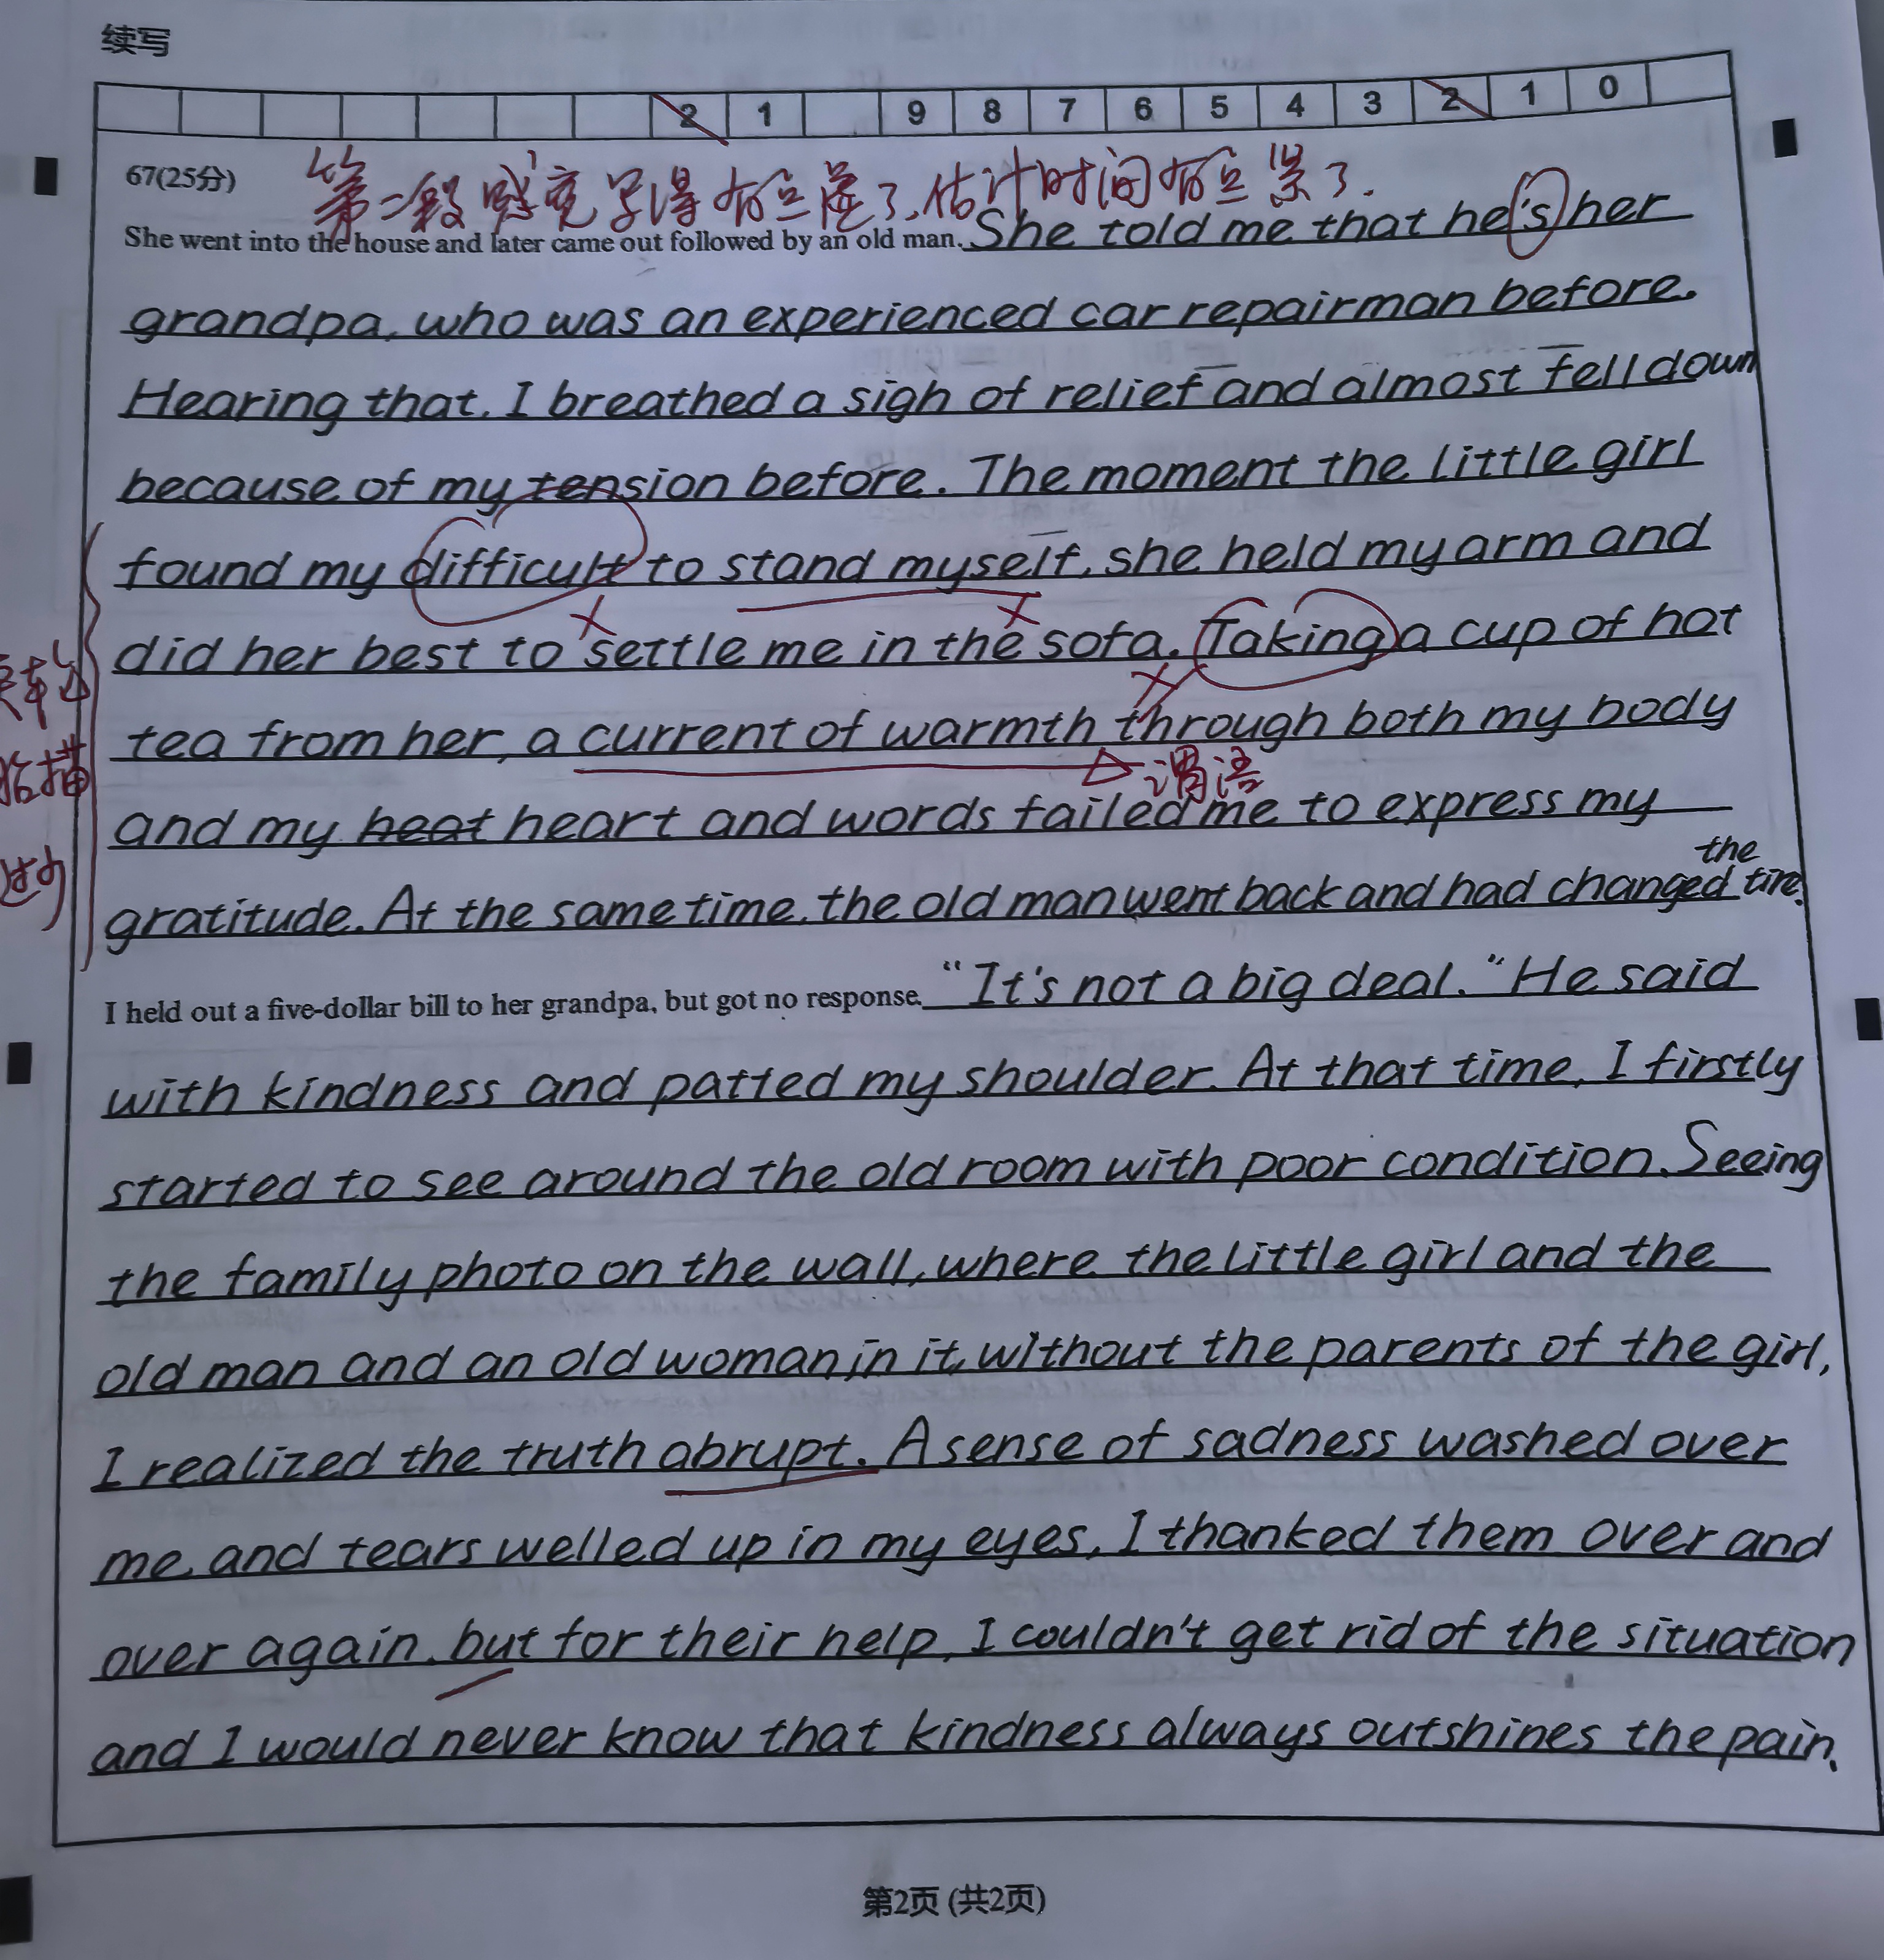 续写
2 1 9 8 7 6 5 4 3 2 1 0
67(25分)
第二段感觉写得有点
了,估计时间有点紧了.
She went into the house and later came out followed by an old man. She told me that he's her
grandpa, who was an experienced car repairman before.
Hearing that, I breathed a sigh of relief and almost fell down
because of my tension before. The moment the little girl
found my difficult to stand myself, she held my arm and
did her best to settle me in the sofa. Taking a cup of hot
tea from her, a current of warmth through both my body
谓语
and my heat heart and words failed me to express my
the
gratitude. At the same time, the old man went back and had changed tire.
I held out a five-dollar bill to her grandpa, but got no response. "It's not a big deal." He said
with kindness and patted my shoulder. At that time, I firstly
started to see around the old room with poor condition. Seeing
the family photo on the wall, where the little girl and the
old man and an old woman in it, without the parents of the girl,
I realized the truth abrupt. A sense of sadness washed over
me and tears welled up in my eyes, I thanked them over and
over again, but for their help, I couldn't get rid of the situation
and I would never know that kindness always outshines the pain.
第2页 (共2页)